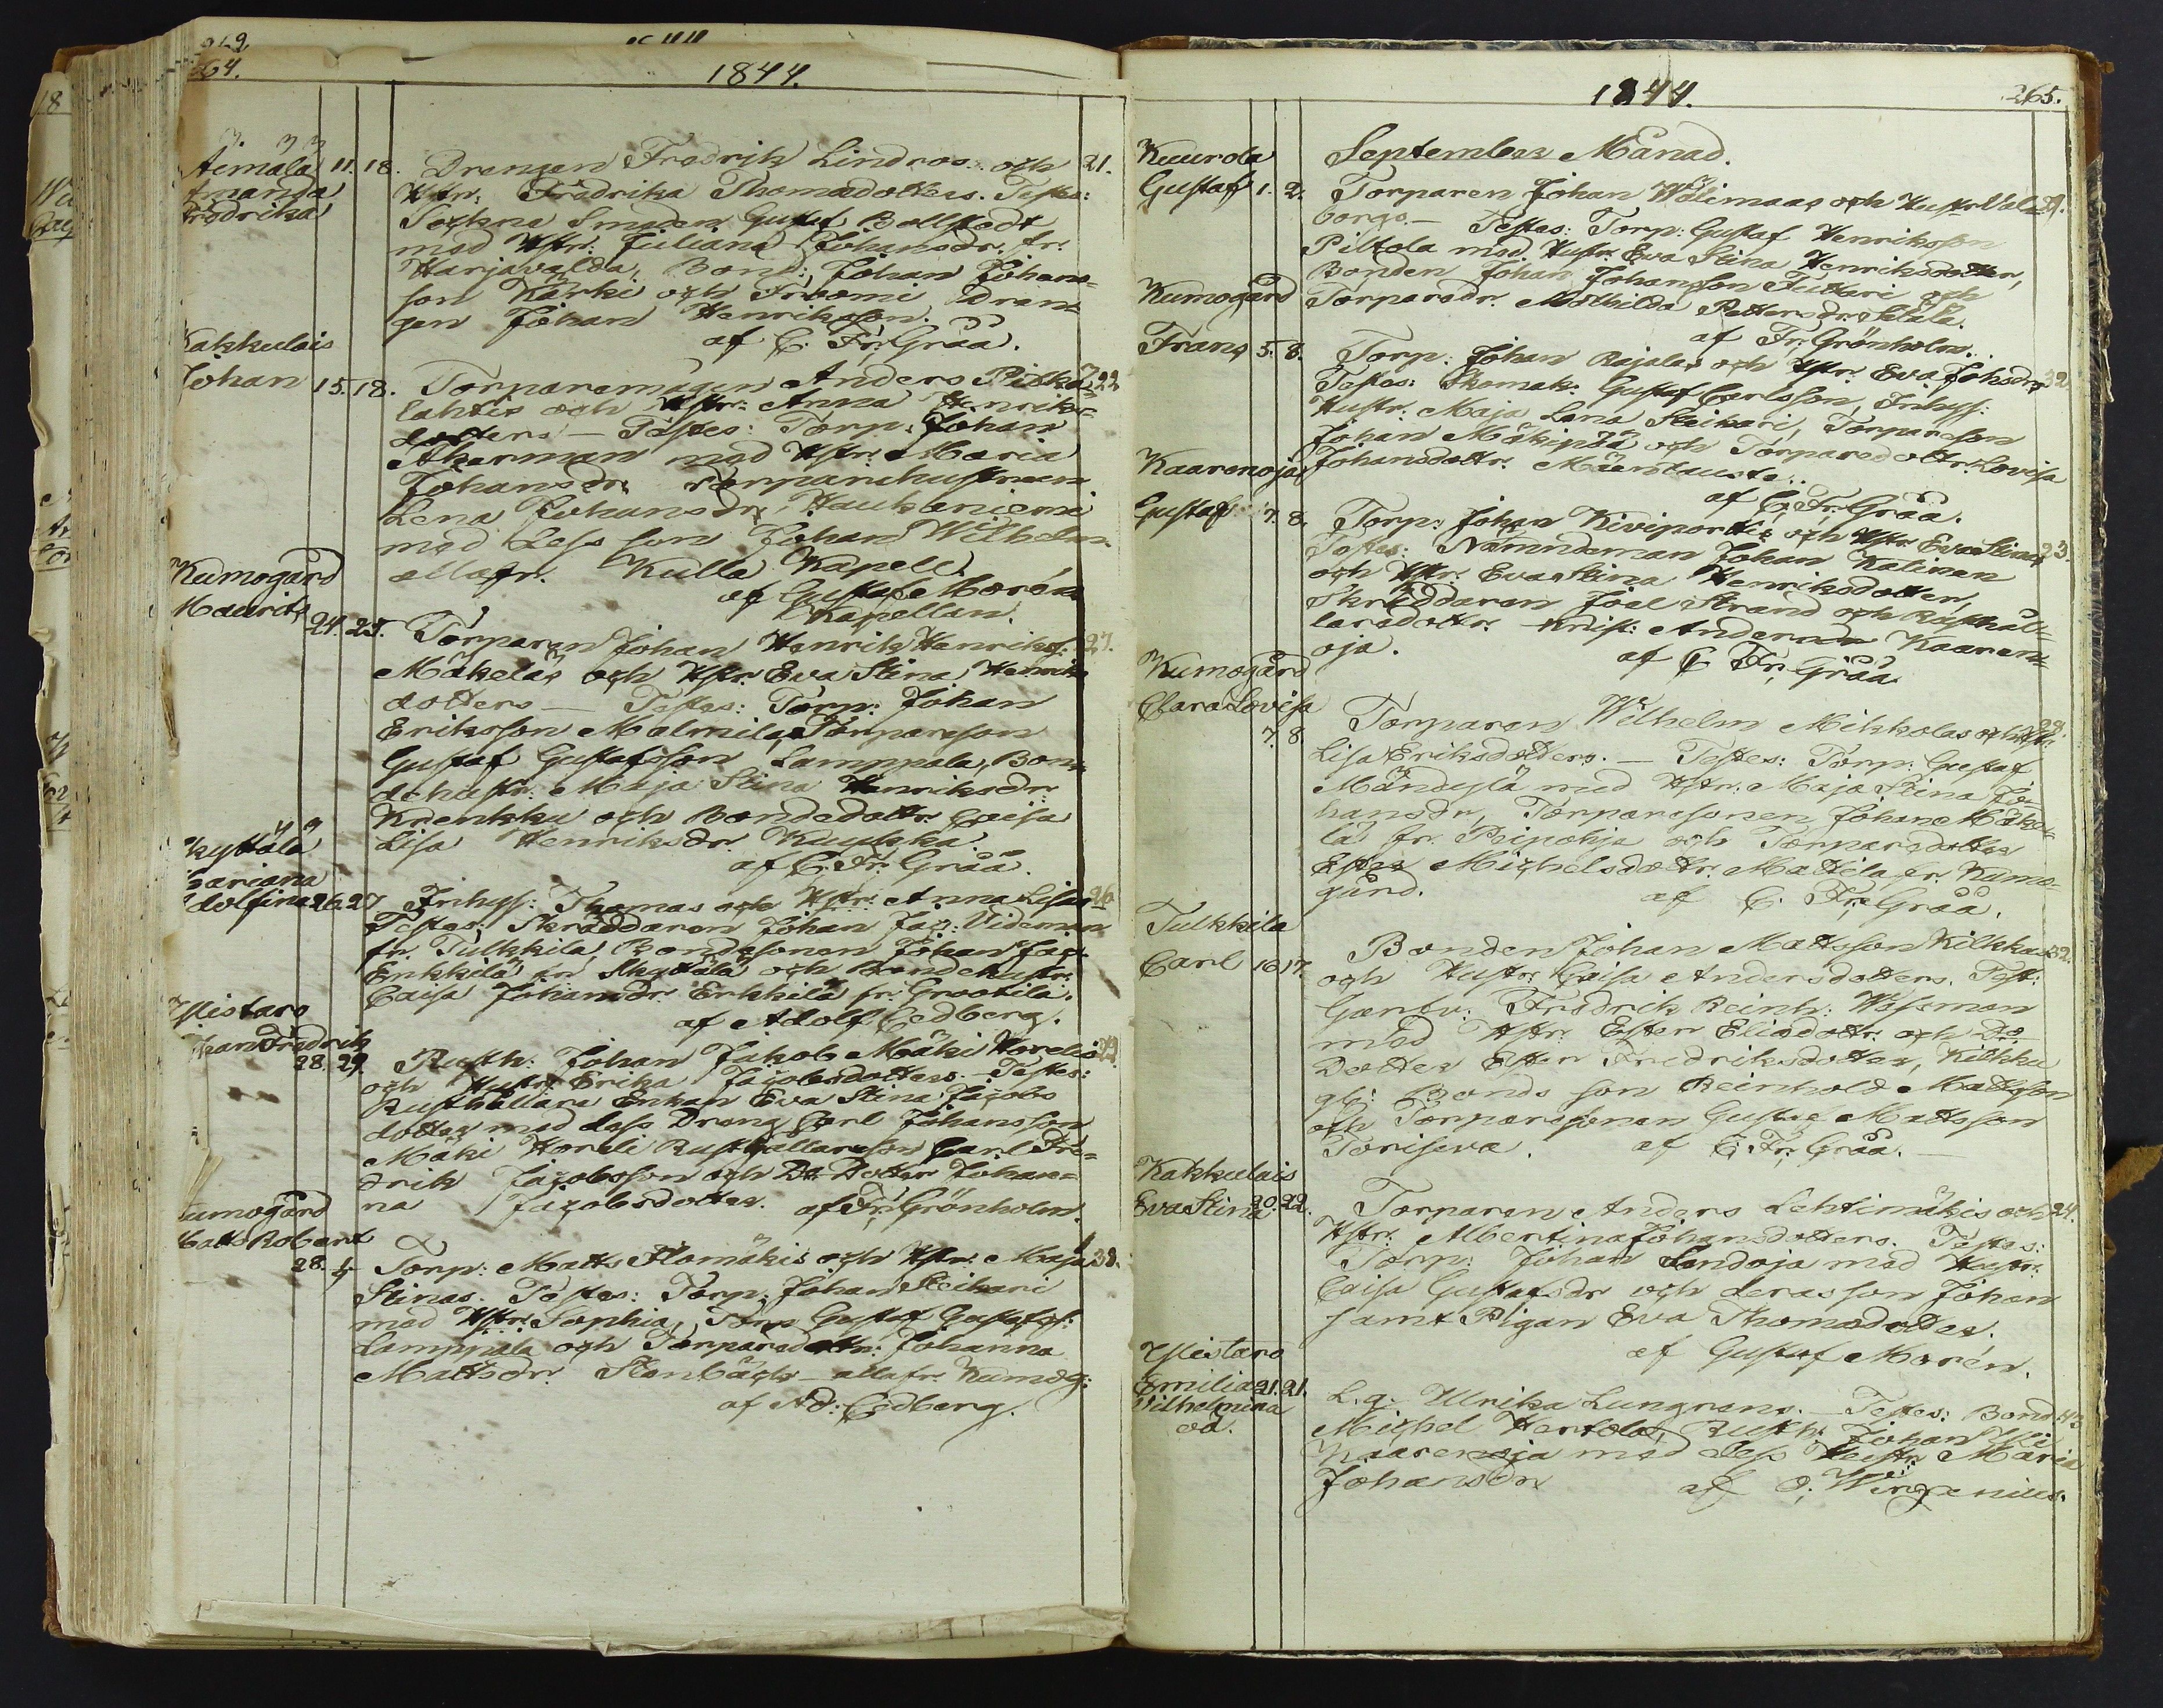 264.
1844.
Äimälä 11. 18. Drengen Fredrik Lindros och 21.
Amanda Hstr. Fredrika Thomasdotters. Testes:
Fredrika Sockne Smeden Gustaf Bollstedt
med Hstr. Juliana Johansdr. fr.
Harjavalda, Bond: Johan Johans-
son Kärki och Fröomi Dren-
gen Johan Henriksson.
af C. Fr. Gråå.
Kakkulais
Johan 15. 18. Torparemågen Anders Piska- 22
lahtis och Hstr. Anna Henriks-
dotters — Testes: Torp: Johan
Åkerman med Hstr. Maria
Johansdr. Torparehustrun
Lena Johansdr. Haukaniemi
med dess son Johan Wilhelm
alla fr. Kulla Kapell.
af Gustaf Morén
Kapellan.
Kumogård
Maurits 24. 25. Torparen Johan Henrik Henrikss. 27.
Mäkeläs och Hstr. Eva Stina Henriks
dotters — Testes: Torp: Johan
Eriksson Malmila, Torpareson
Gustaf Gustafsson Lamppala, Bon-
dehustr. Maja Stina Henriksdr.
Krenkku och Bondedottr. Caisa
Lisa Henriksdr. Knuukka.
af C. Fr. Gråå.
Skyttälä
Mariana
Adolfina 26. 27 Inhys: Thomas och Hstr. Anna Lisas 26
Testes: Skräddaren Johan Jac: Videman
fr. Tulkkila, Bondesonen Johan Jac:
Erkkilä fr. Skyttälä och Bondehustr.
Caisa Johansdr. Erkkilä fr. Grootila.
af Adolf Cedberg.
Ylistaro
Johan Fredrik
28. 29. Rusth: Johan Jakob Mäki Horelis 22.
och Hustr. Erika Jacobsdotters. Testes:
Rusthållare Enkan Eva Stina Jacobs
dotter med dess Dreng Carl Johansson
Mäki Horeli Rusthållareson Carl Fre-
drik Jacobsson och Do Dotter Johan-
na Jacobsdotter. af Fr. Grönholm.
Kumogård
Matts Robert
28. Torp: Matts Ilomäkis och Hstr. Maja 38.
Stinas. Testes: Torp: Johan Steikari
med Hstr. Sophia, Torp Gustaf Gustafss:
Lamppala och Torparedottr. Johanna
Mattsdr. Stenbäck — alla fr. Kumog:
af Ad: Cedberg.
1844.
265.
Kuurola September Månad.
Gustaf 1. 2. Torparen Johan Wälimaas och Hustr. Val-
borgs — Testes: Torp: Gustaf Henriksson
Piltola med Hustr. Eva Stina Henriksdotter,
Bonden Johan Johansson Tuttari och
Kumogård Torparedr. Mathilda Pettersdr.
af Fr. Grönholm.
Frans 5. 8. Torp: Johan Rajalas och Hstr. Eva Johsdrs 32
Testes: Skomak: Gustaf Carlsson, Inhys:
Hustr. Maja Lena Steikari, Torpareson
Johan Mäkipää och Torparedottr. Lovisa
Kaarenoja Johansdottr. Mäenlausta.
af C. Fr. Gråå.
Gustaf 7. 8. Torp: Johan Kiviportis och Hstr. Eva Stinas 23.
Testes: Nämndeman Johan Kalinen
och Hstr. Eva Stina Henriksdotter,
Skräddaren Joel Strand och Rusthål-
laredottr. Krist: Andersdr Kaaren-
oja.
Kumogård af C Fr. Gråå
Clara Lovisa
7. 8. Torparen Wilhelm Mikkolas och Hstr. 29.
Lisa Eriksdotters. — Testes: Torp: Gustaf
Mändylä med Hstr. Maja Stina Jo-
hansdr, Torparesonen Johan Mäke-
lä fr. Peipohja och Torparedotter
Ester Michelsdottr. Mattila fr. Kumo-
gård.
af C. Fr. Gråå.
Tulkkila
Carl 16. 17. Bonden Johan Mattsson Kilkkus 32.
och Hustr. Caisa Andersdotters. Test:
Garfv: Fredrik Reinh: Wassman
med Hstr. Ester Eliædottr. och Do
Dotter Ester Fredriksdotter, Kilkku
gl: Bonde son Reinhold Mattsson
och Torparesonen Gustaf Mattsson
Toriseva. af C. Fr. Gråå. —
Kakkulais
Eva Stina 20. 22. Torparen Anders Lehtimäkis och 24.
Hstr. Albertina Johansdotters. Testes:
Torp: Johan Sandoja med Hustr.
Caisa Gustafsdr och deras son Johan
samt Pigan Eva Thomasdotter.
af Gustaf Morén.
Ylistaro
Emilia 21. 21. L.q. Ulrika Lungrens. — Testes: Bond 43
Vilhelmina Michel Hertola, Rusth: Johan Yli
oä. Kaarenoja med dess Hustr. Maria
Johansdr af O. Wirzenius.